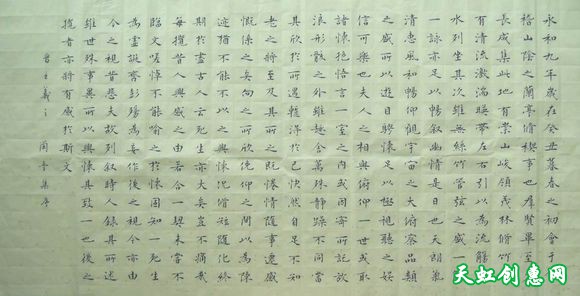 永和九年歲在癸丑暮春之初會于
稽山陰之蘭亭脩禊事也群賢畢至
長咸集此地有崇山峻領茂林脩竹
有清流激湍暎帶左右引以為流觴
水列坐其次雖無絲竹管弦之盛一觴
一詠亦足以暢敘幽情是日也天朗氣
清惠風和暢仰觀宇宙之大俯察品類
之盛所以遊目騁懷足以極視聽之娛
信可樂也夫人之相與俯仰一世或取
諸懷抱悟言一室之內或因寄所託放
浪形骸之外雖趣舍萬殊靜躁不同當
其欣於所遇蹔得於己快然自足不知
老之將至及其所之既惓情隨事遷感
慨係之矣向之所欣俛仰之間以為陳
迹猶不能不以之興懷況脩短隨化終
期於盡古人云死生亦大矣豈不痛哉
每攬昔人興感之由若合一契未嘗不
臨文嗟悼不能喻之於懷固知一死生
為虛誕齊彭殤為妄作後之視今亦由
今之視昔悲夫故列敘時人錄其所述
雖世殊事異所以興懷其致一也後之
攬者亦將有感於斯文
晉王羲之 蘭亭集序
天虹创意网